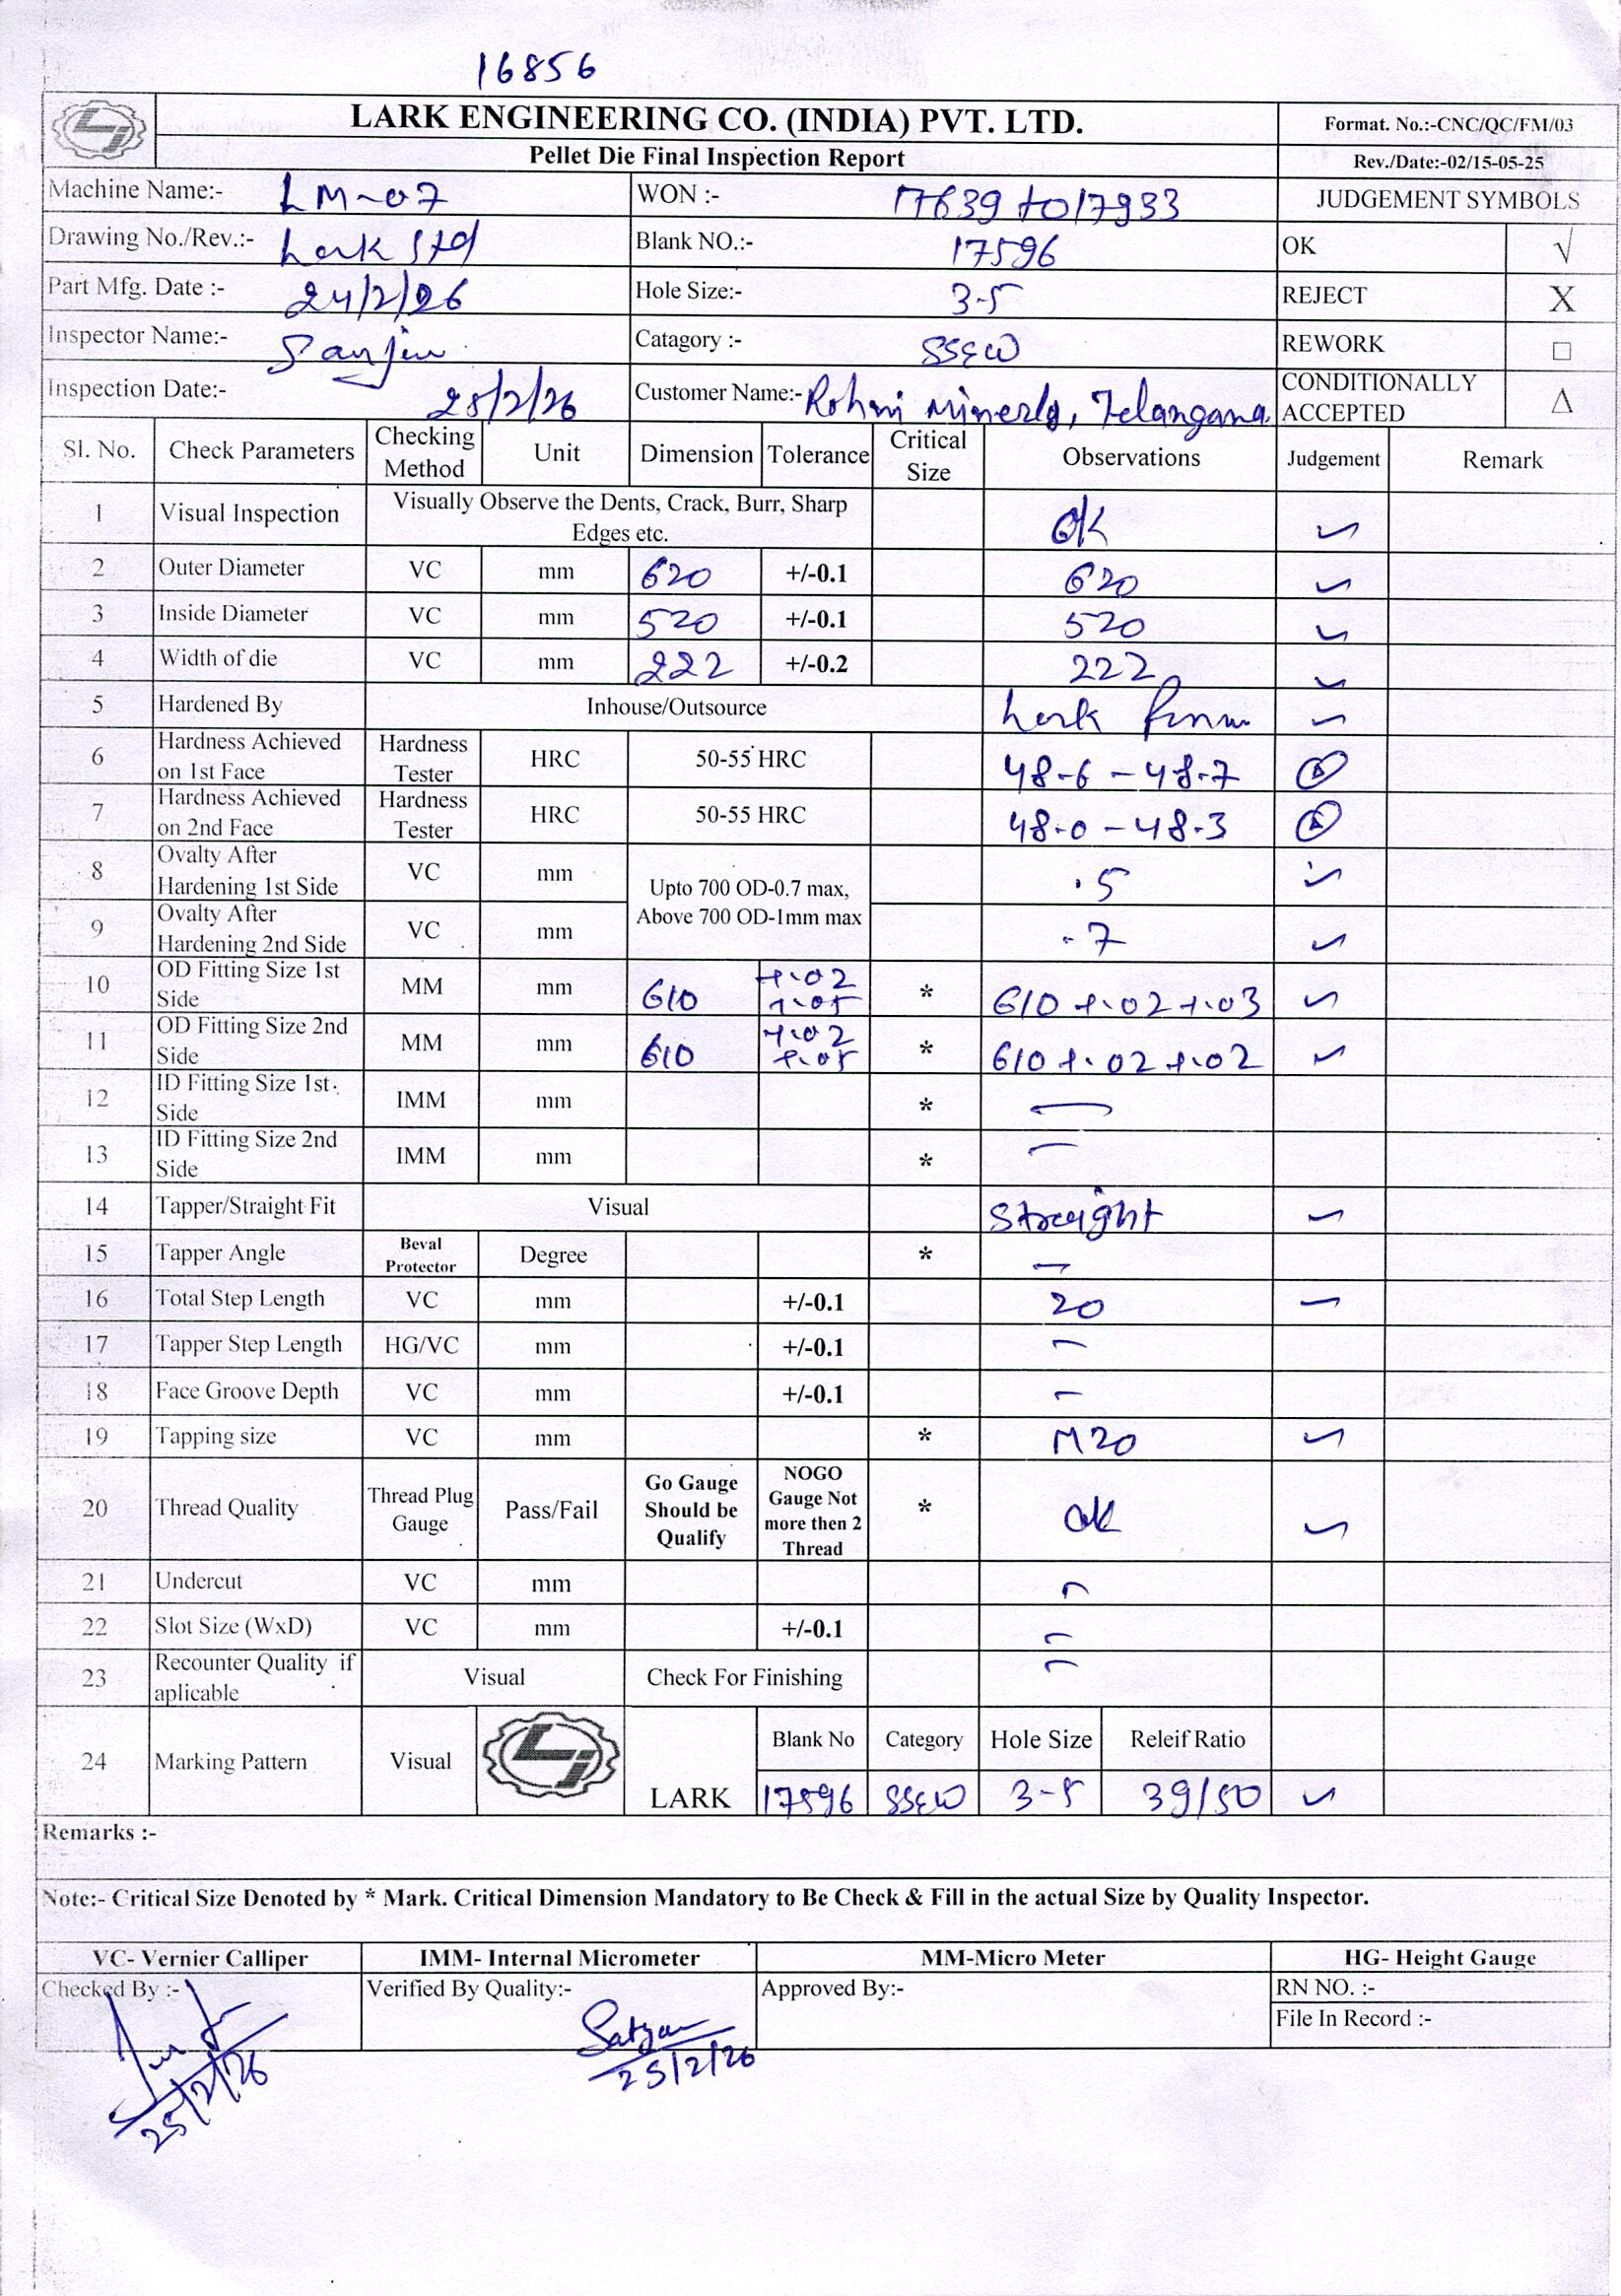 16856
LARK ENGINEERING CO. (INDIA) PVT. LTD.
Format. No.:-CNC/QC/FM/03
Pellet Die Final Inspection Report
Rev./Date:-02/15-05-25
Machine Name:- LM-07 WON :- 17639 to 17933 JUDGEMENT SYMBOLS
Drawing No./Rev.:- Lark Std Blank NO.:- 17596 OK √
Part Mfg. Date :- 24/2/26 Hole Size:- 3-5 REJECT X
Inspector Name:- Sanjiv Catagory :- SSEW REWORK □
Inspection Date:- 25/2/26 Customer Name:- Rohni Minerls, Telangana CONDITIONALLY ACCEPTED △
Sl. No. Check Parameters Checking Method Unit Dimension Tolerance Critical Size Observations Judgement Remark
1 Visual Inspection Visually Observe the Dents, Crack, Burr, Sharp Edges etc. OK ✓
2 Outer Diameter VC mm 620 +/-0.1 620 ✓
3 Inside Diameter VC mm 520 +/-0.1 520 ✓
4 Width of die VC mm 222 +/-0.2 222 ✓
5 Hardened By Inhouse/Outsource Lark ✓
6 Hardness Achieved on 1st Face Hardness Tester HRC 50-55 HRC 48-6 - 48-7
7 Hardness Achieved on 2nd Face Hardness Tester HRC 50-55 HRC 48-0 - 48-3
8 Ovalty After Hardening 1st Side VC mm Upto 700 OD-0.7 max, Above 700 OD-1mm max .5 ✓
9 Ovalty After Hardening 2nd Side VC mm .7 ✓
10 OD Fitting Size 1st Side MM mm 610 +.02 +.05 * 610 +.02 +.03 ✓
11 OD Fitting Size 2nd Side MM mm 610 +.02 +.05 * 610 +.02 +.02 ✓
12 ID Fitting Size 1st Side IMM mm * —
13 ID Fitting Size 2nd Side IMM mm * —
14 Tapper/Straight Fit Visual Straight ✓
15 Tapper Angle Beval Protector Degree * —
16 Total Step Length VC mm +/-0.1 20 ✓
17 Tapper Step Length HG/VC mm +/-0.1 —
18 Face Groove Depth VC mm +/-0.1 —
19 Tapping size VC mm * M20 ✓
20 Thread Quality Thread Plug Gauge Pass/Fail Go Gauge Should be Qualify NOGO Gauge Not more then 2 Thread * ok ✓
21 Undercut VC mm —
22 Slot Size (WxD) VC mm +/-0.1 —
23 Recounter Quality if aplicable Visual Check For Finishing —
24 Marking Pattern Visual LARK Blank No Category Hole Size Releif Ratio
17596 SSEW 3-5 39/50 ✓
Remarks :-
Note:- Critical Size Denoted by * Mark. Critical Dimension Mandatory to Be Check & Fill in the actual Size by Quality Inspector.
VC- Vernier Calliper IMM- Internal Micrometer MM-Micro Meter HG- Height Gauge
Checked By :- Verified By Quality:- Approved By:- RN NO. :-
File In Record :-
25/2/26
Satyan
25/2/26